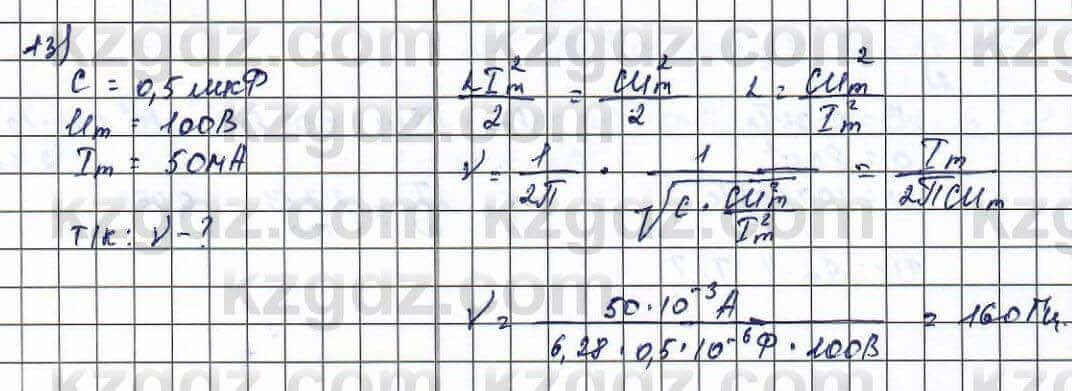 13)
C = 0,5 мкФ
Um = 100В
Im = 50мА
т/к: ν - ?
LIm²/2 = CUm²/2   L = CUm²/Im²
ν = 1/2π · 1/√(C · CUm²/Im²) = Im/2πCUm
ν = 50·10⁻³А / 6,28·0,5·10⁻⁶Ф·100В = 160Гц.
kzgdz.com
kzgdz.com
kzgdz.com
kzgdz.com
kzgdz.com
kzgdz.com